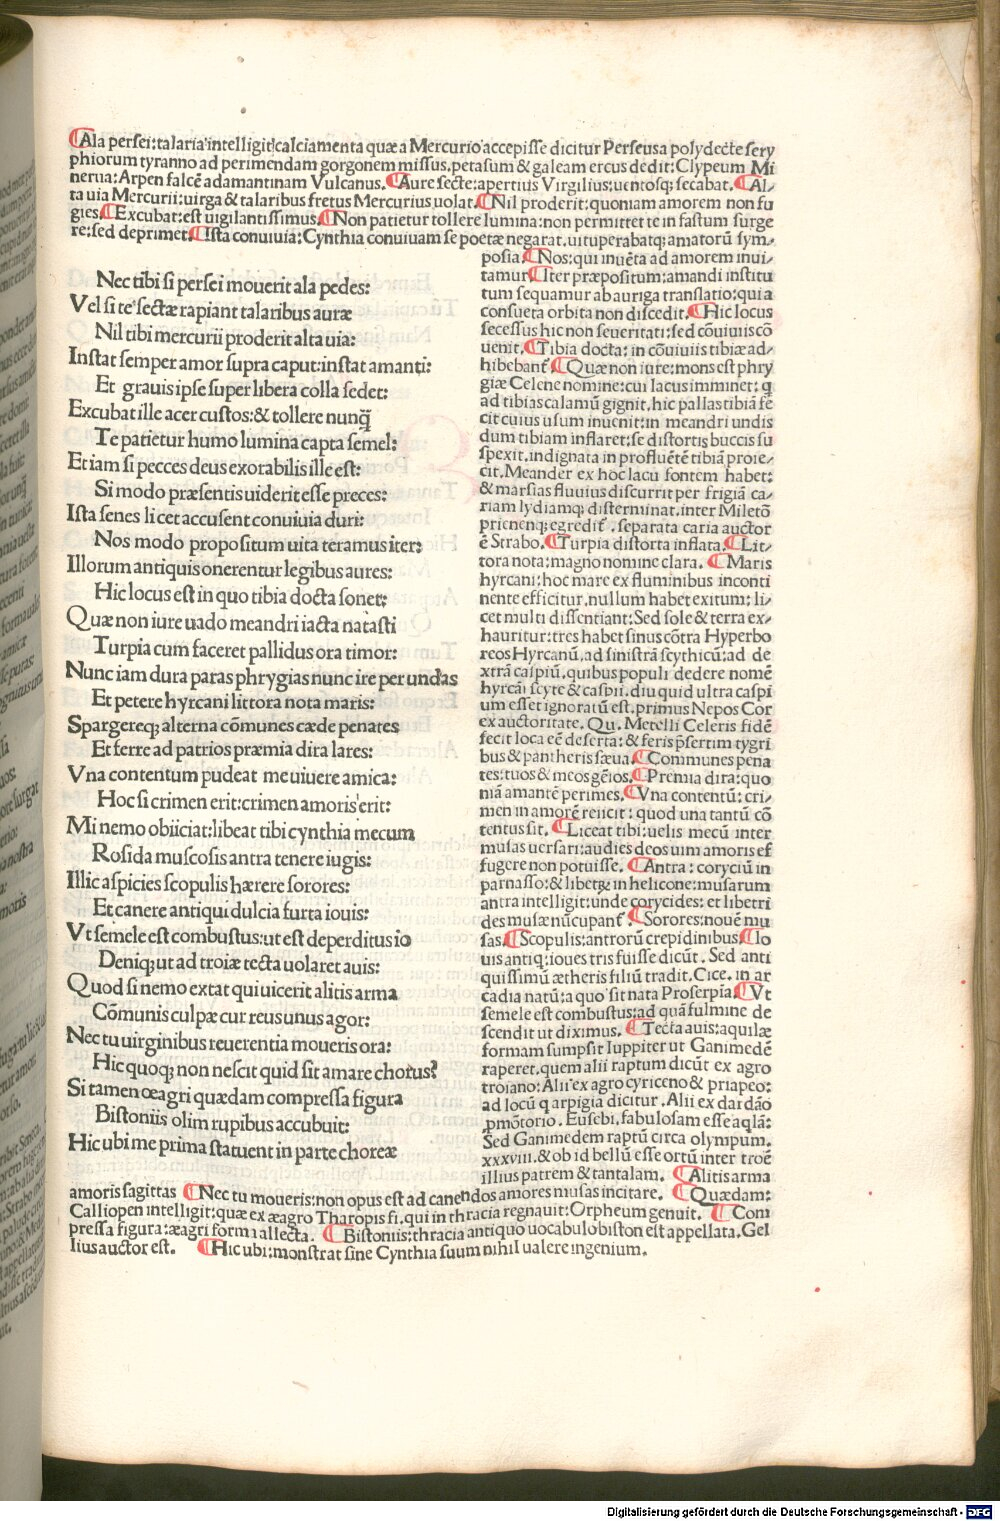 Ala persei: talaria intelligit: calciamenta quæ a Mercurio accepisse dicitur Perseus a polydecte sery
phiorum tyranno ad perimendam gorgonem missus. petasum & galeam ercus dedit: Clypeum Mi
nerua: Arpen falcē adamantinam Vulcanus. Aure secte: apertius Virgilius: uentosq; secabat. Al/
ta uia Mercurii: uirga & talaribus fretus Mercurius uolat. Nil proderit: quoniam amorem non fu
gies. Excubat: est uigilantissimus. Non patietur tollere lumina: non permittet te in fastum surge
re: sed deprimet. Ista conuiuia: Cynthia conuiuam se poetæ negarat. uituperabatq; amatorū sym/
Nec tibi si persei mouerit ala pedes:
Vel si te sectæ rapiant talaribus auræ
Nil tibi mercurii proderit alta uia:
Instat semper amor supra caput: instat amanti:
Et grauis ipse super libera colla sedet:
Excubat ille acer custos: & tollere nunq̄
Te patietur humo lumina capta semel:
Et iam si pecces deus exorabilis ille est:
Si modo præsentis uiderit esse preces:
Ista senes licet accusent conuiuia duri:
Nos modo propositum uita teramus iter:
Illorum antiquis onerentur legibus aures:
Hic locus est in quo tibia docta sonet:
Quæ non iure uado meandri iacta natasti
Turpia cum faceret pallidus ora timor:
Nunc iam dura paras phrygias nunc ire per undas
Et petere hyrcani littora nota maris:
Spargereq; alterna cōmunes cæde penates
Et ferre ad patrios præmia dira lares:
Vna contentum pudeat me uiuere amica:
Hoc si crimen erit: crimen amoris erit:
Mi nemo obiiciat: libeat tibi cynthia mecum
Rosida muscosis antra tenere iugis:
Illic aspicies scopulis hærere sorores:
Et canere antiqui dulcia furta iouis:
Vt semele est combustus: ut est deperditus io
Deniq; ut ad troiæ tecta uolaret auis:
Quod si nemo extat qui uicerit alitis arma
Cōmunis culpæ cur reus unus agor:
Nec tu uirginibus reuerentia moueris ora:
Hic quoq; non nescit quid sit amare chorus?
Si tamen œagri quædam compressa figura
Bistoniis olim rupibus accubuit:
Hic ubi me prima statuent in parte choreæ
posia. Nos: qui inuēta ad amorem inui/
tamur. Iter præpositum: amandi institu
tum sequamur ab auriga translatio: qui a
consueta orbita non discedit. Hic locus
secessus hic non seueritati: sed cōuiuiis cō
uenit. Tibia docta: in cōuiuiis tibiæ ad/
hibebant. Quæ non iure: mons est phry
giæ Celene nomine: cui lacus imminet: q
ad tibias calamū gignit. hic pallas tibiā fe
cit cuius usum inuenit: in meandri undis
dum tibiam inflaret: se distortis buccis su
spexit. indignata in profluētē tibiā proie/
cit. Meander ex hoc lacu fontem habet:
& marsias fluuius discurrit per frigiā ca/
riam lydiamq; disterminat. inter Miletō
prienenq; egredit. separata caria auctor
ē Strabo. Turpia distorta inflata. Lit/
tora nota: magno nomine clara. Maris
hyrcani: hoc mare ex fluminibus inconti
nente efficitur. nullum habet exitum: li/
cet multi dissentiant: Sed sole & terra ex/
hauritur: tres habet sinus cōtra Hyperbo
reos Hyrcanū, ad sinistrā scythicū: ad de
xtrā caspiū. quibus populi dedere nomē
hyrcāi scyte & caspii. diu quid ultra caspi
um esset ignoratū est. primus Nepos Cor
ex auctoritate. Qu. Metelli Celeris fidē
fecit loca eē deserta: & feris p̄sertim tygri
bus & pantheris sæua. Communes pena
tes: tuos & meos gēios. Premia dira: quo
niā amantē perimes. Vna contentū: cri/
men in amorē reiicit: quod una tantū cō
tentus sit. Liceat tibi: uelis mecū inter
musas uersari: audies deos uim amoris ef
fugere non potuisse. Antra: coryciū in
parnasso: & libetræ in helicone: musarum
antra intelligit: unde corycides: et libetri
des musæ nūcupant. Sorores: nouē mu
sas. Scopulis: antrorū crepidinibus. Io
uis antiq; ioues tris fuisse dicūt. Sed anti
quissimū ætheris filiū tradit. Cice. in ar
cadia natū: a quo sit nata Proserpīa. Vt
semele est combustus: ad quā fulmine de
scendit ut diximus. Tecta auis: aquilæ
formam sumpsit Iuppiter ut Ganimedē
raperet. quem alii raptum dicūt ex agro
troiano: Alii ex agro cyriceno & priapeo:
ad locū q arpigia dicitur. Alii ex dardāo
pmōtorio. Eusebi. fabulosam esse aqlā:
Sed Ganimedem raptū circa olympum.
xxxviii. & ob id bellū esse ortū inter troē
illius patrem & tantalam. Alitis arma
amoris sagittas Nec tu moueris: non opus est ad canendos amores musas incitare. Quædam:
Calliopen intelligit: quæ ex æagro Tharopis fi. qui in thracia regnauit: Orpheum genuit. Com
pressa figura: æagri formi allecta. Bistoniis: thracia antiquo uocabulo biston est appellata. Gel
lius auctor est. Hic ubi: monstrat sine Cynthia suum nihil ualere ingenium.
Digitalisierung gefördert durch die Deutsche Forschungsgemeinschaft - DFG